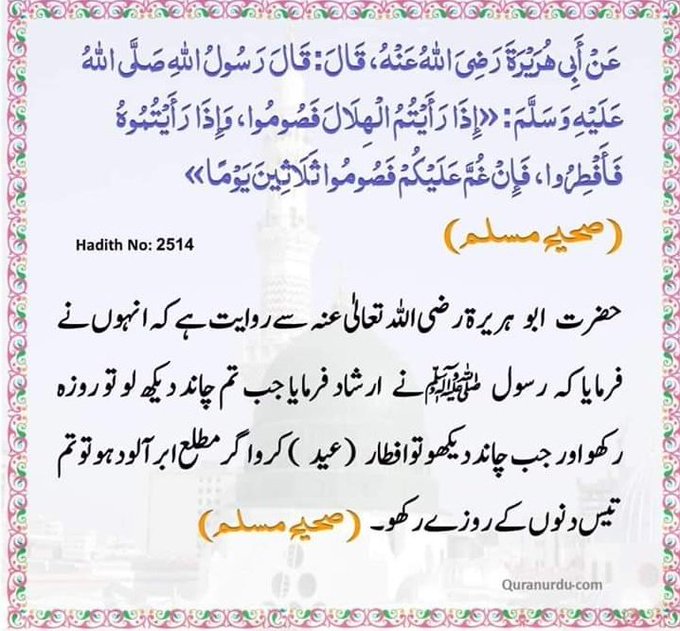 عَنْ أَبِي هُرَيْرَةَ رَضِيَ اللهُ عَنْهُ، قَالَ: قَالَ رَسُولُ اللهِ صَلَّى اللهُ
عَلَيْهِ وَسَلَّمَ: «إِذَا رَأَيْتُمُ الْهِلَالَ فَصُومُوا، وَإِذَا رَأَيْتُمُوهُ
فَأَفْطِرُوا، فَإِنْ غُمَّ عَلَيْكُمْ فَصُومُوا ثَلَاثِينَ يَوْمًا»
(صحیح مسلم)
Hadith No: 2514
حضرت ابو ہریرۃ رضی اللہ تعالیٰ عنہ سے روایت ہے کہ انہوں نے
فرمایا کہ رسول ﷺ نے ارشاد فرمایا جب تم چاند دیکھ لو تو روزہ
رکھو اور جب چاند دیکھو تو افطار (عید) کرو اگر مطلع ابر آلود ہو تو تم
تیس دنوں کے روزے رکھو۔ (صحیح مسلم)
Quranurdu-com